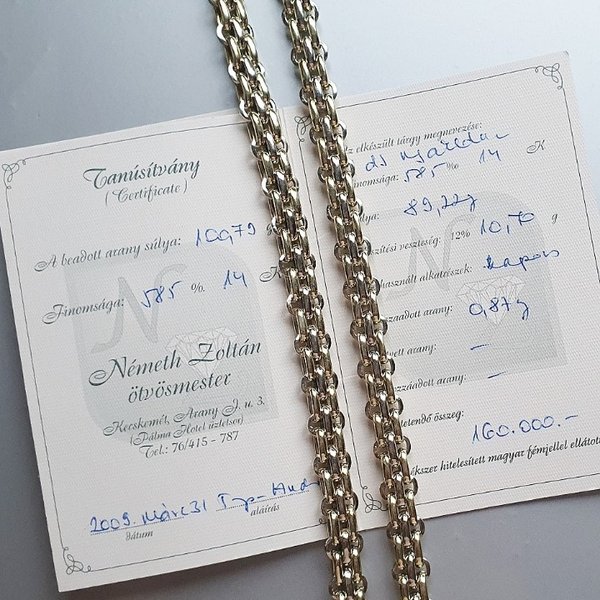 Tanúsítvány
(Certificate)
A beadott arany súlya: 100,79 g
Finomsága: 585 %. 14
Németh Zoltán
ötvösmester
Kecskemét, Arany J. u. 3.
(Pálma Hotel üzletsor)
Tel.: 76/415 - 787
2009. Márc 31
Dátum aláírás
z elkészült tárgy megnevezése:
Finomsága: 585 %. 14 K
súlya: 89,22g
készítési veszteség: 12% 10,70 g
használt alkatrészek: kapocs
hozzáadott arany: 0,87g
vett arany: –
hozzáadott arany: –
fizetendő összeg:
160.000.-
ékszer hitelesített magyar fémjellel ellátott